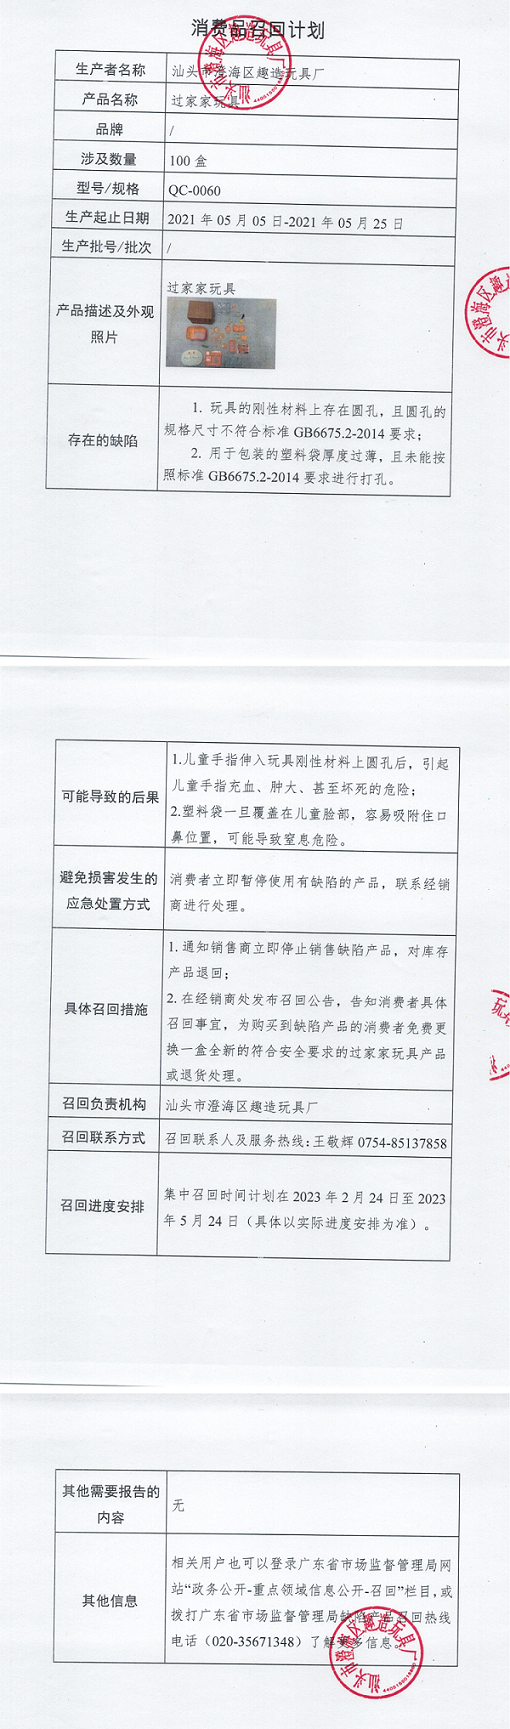 消费品召回计划
生产者名称
汕头市澄海区趣造玩具厂
产品名称
过家家玩具
品牌
/
涉及数量
100 盒
型号/规格
QC-0060
生产起止日期
2021 年 05 月 05 日-2021 年 05 月 25 日
生产批号/批次
/
产品描述及外观
照片
过家家玩具
存在的缺陷
1. 玩具的刚性材料上存在圆孔，且圆孔的
规格尺寸不符合标准 GB6675.2-2014 要求；
2. 用于包装的塑料袋厚度过薄，且未能按
照标准 GB6675.2-2014 要求进行打孔。
可能导致的后果
1.儿童手指伸入玩具刚性材料上圆孔后，引起
儿童手指充血、肿大、甚至坏死的危险；
2.塑料袋一旦覆盖在儿童脸部，容易吸附住口
鼻位置，可能导致窒息危险。
避免损害发生的
应急处置方式
消费者立即暂停使用有缺陷的产品，联系经销
商进行处理。
具体召回措施
1. 通知销售商立即停止销售缺陷产品，对库存
产品退回；
2. 在经销商处发布召回公告，告知消费者具体
召回事宜，为购买到缺陷产品的消费者免费更
换一盒全新的符合安全要求的过家家玩具产品
或退货处理。
召回负责机构
汕头市澄海区趣造玩具厂
召回联系方式
召回联系人及服务热线：王敬辉 0754-85137858
召回进度安排
集中召回时间计划在 2023 年 2 月 24 日至 2023
年 5 月 24 日（具体以实际进度安排为准）。
其他需要报告的
内容
无
其他信息
相关用户也可以登录广东省市场监督管理局网
站“政务公开-重点领域信息公开-召回”栏目，或
拨打广东省市场监督管理局缺陷产品召回热线
电话（020-35671348）了解更多信息。
汕头市澄海区趣造玩具厂